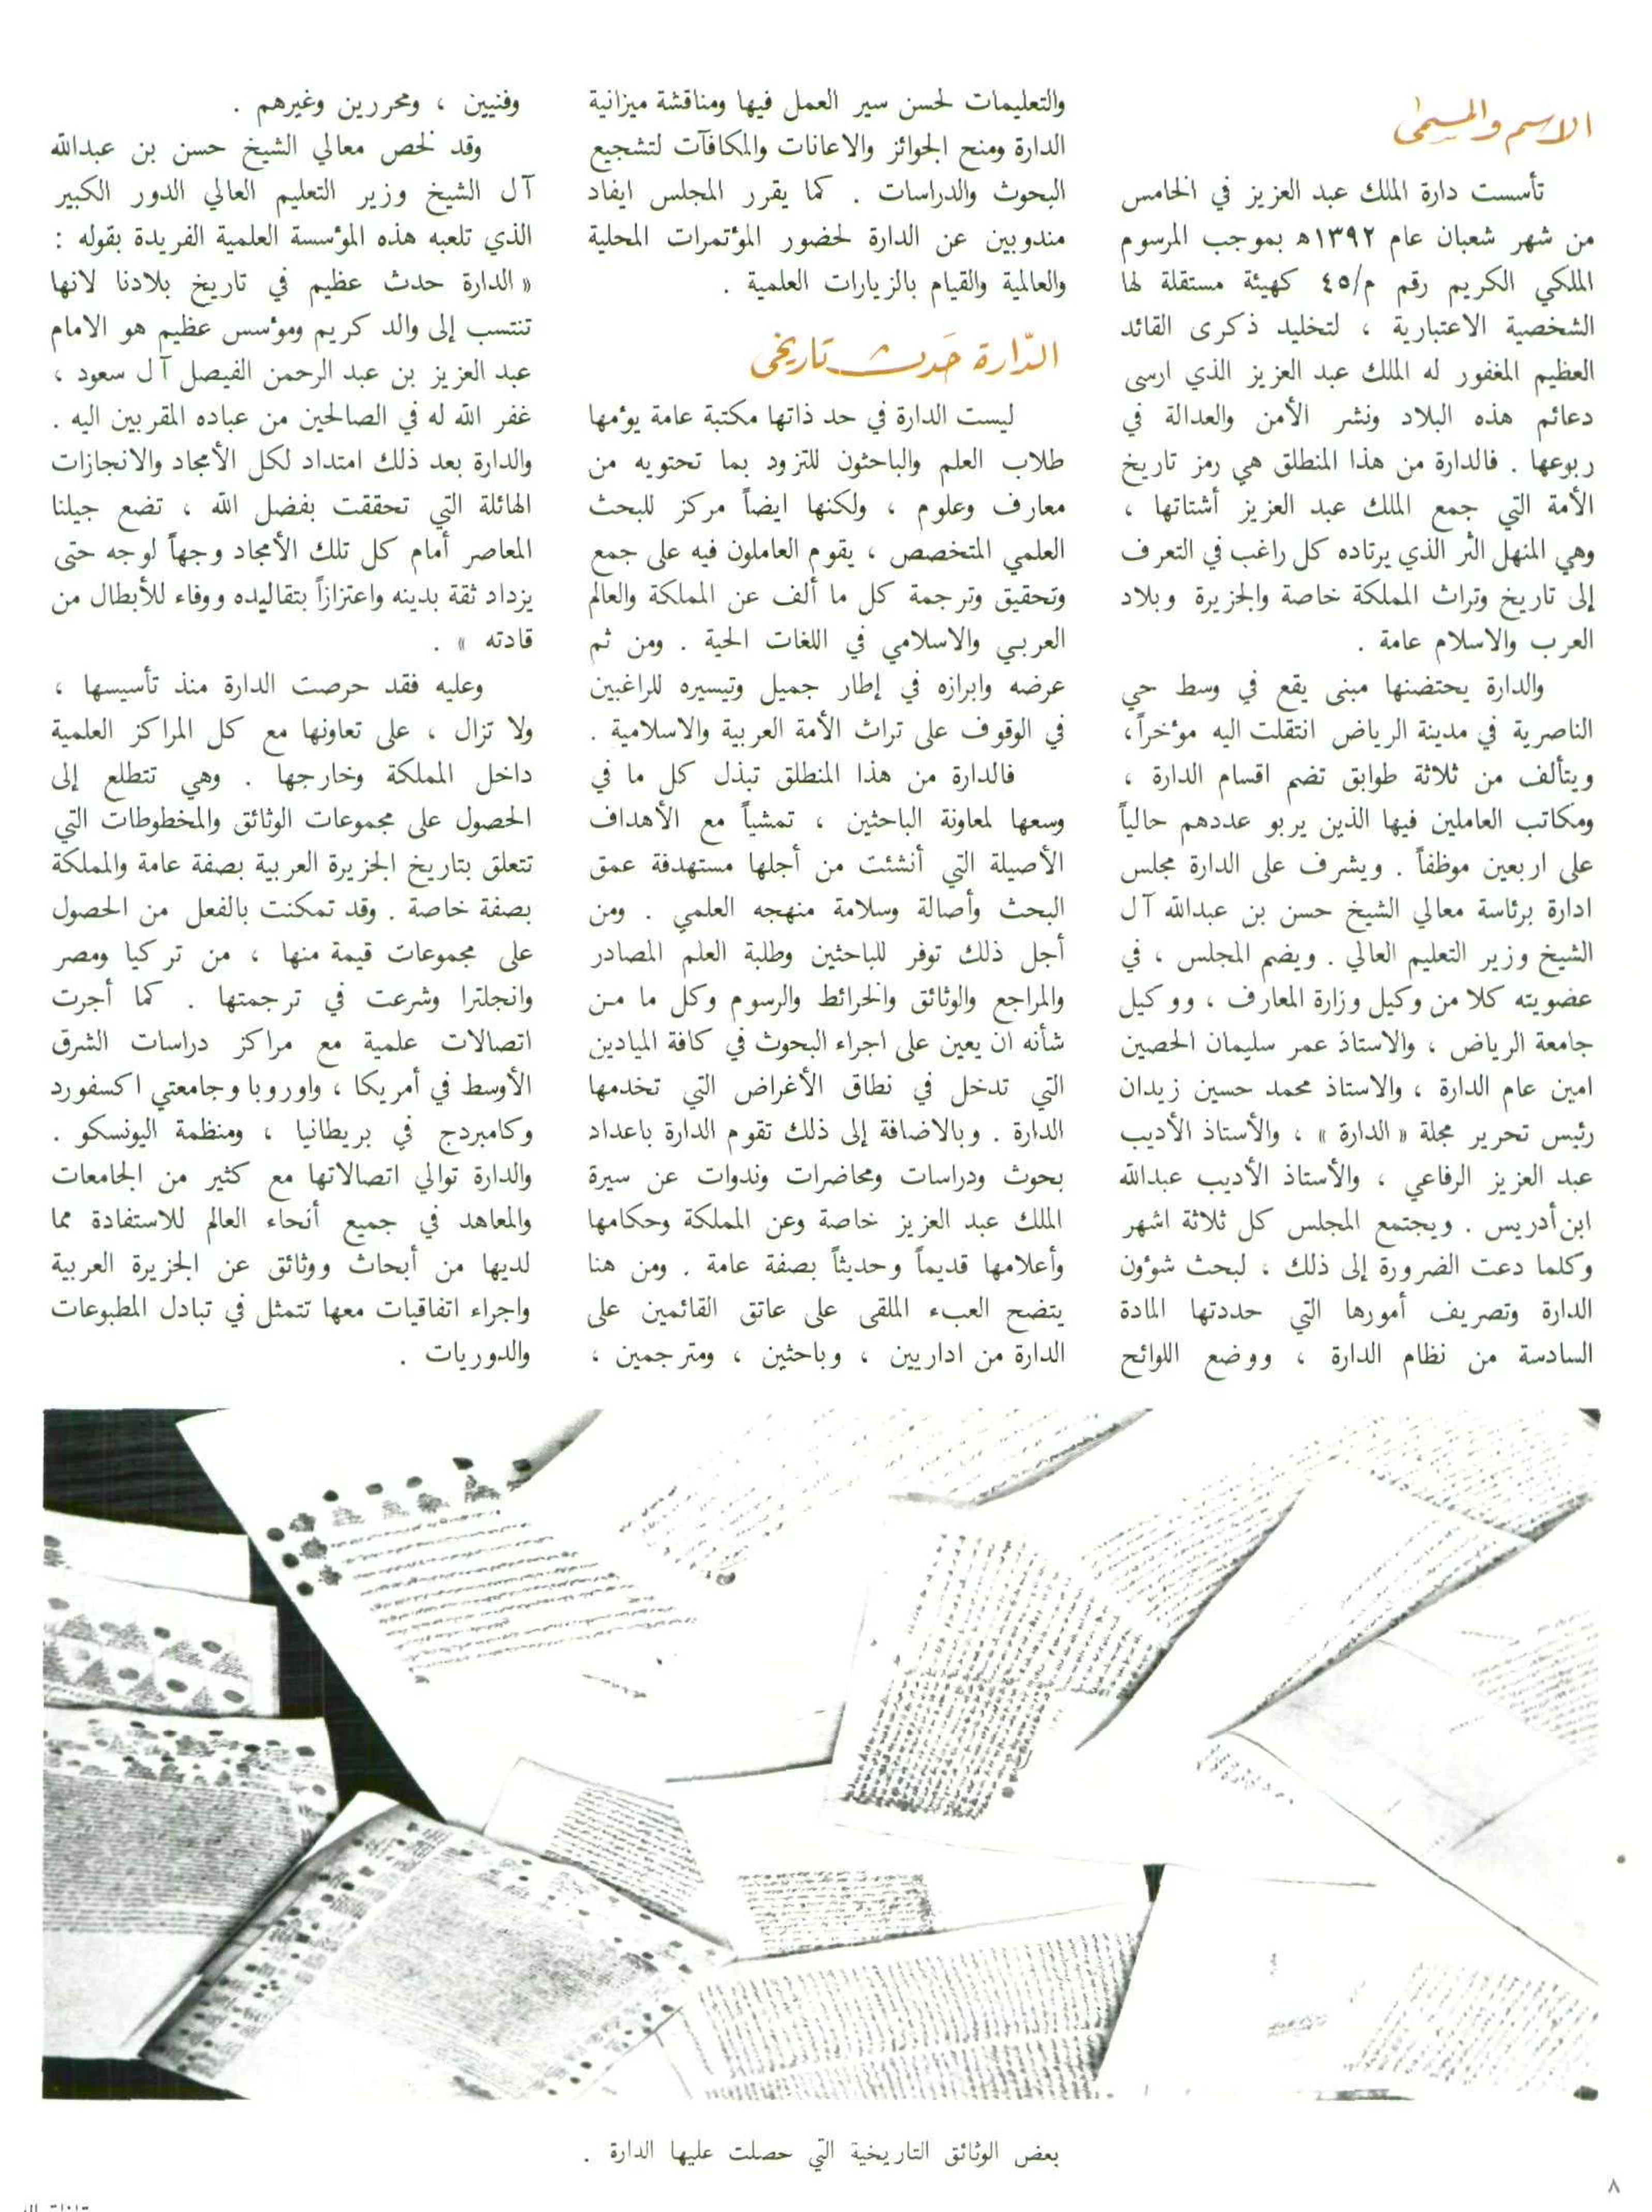 الاسم والمسمى
تأسست دارة الملك عبد العزيز في الخامس
من شهر شعبان عام ١٣٩٢ه بموجب المرسوم
الملكي الكريم رقم م/٤٥ كهيئة مستقلة لها
الشخصية الاعتبارية ، لتخليد ذكرى القائد
العظيم المغفور له الملك عبد العزيز الذي ارسى
دعائم هذه البلاد ونشر الأمن والعدالة في
ربوعها . فالدارة من هذا المنطلق هي رمز تاريخ
الأمة التي جمع الملك عبد العزيز أشتاتها ،
وهي المنهل الثر الذي يرتاده كل راغب في التعرف
إلى تاريخ وتراث المملكة خاصة والجزيرة وبلاد
العرب والاسلام عامة .
والدارة يحتضنها مبنى يقع في وسط حي
الناصرية في مدينة الرياض انتقلت اليه مؤخراً،
ويتألف من ثلاثة طوابق تضم اقسام الدارة ،
ومكاتب العاملين فيها الذين يربو عددهم حالياً
على اربعين موظفاً . ويشرف على الدارة مجلس
ادارة برئاسة معالي الشيخ حسن بن عبدالله آل
الشيخ وزير التعليم العالي . ويضم المجلس ، في
عضويته كلا من وكيل وزارة المعارف ، ووكيل
جامعة الرياض ، والاستاذ عمر سليمان الحصين
امين عام الدارة ، والاستاذ محمد حسين زيدان
رئيس تحرير مجلة « الدارة » ، والأستاذ الأديب
عبد العزيز الرفاعي ، والأستاذ الأديب عبدالله
ابن أدريس . ويجتمع المجلس كل ثلاثة اشهر
وكلما دعت الضرورة إلى ذلك ، لبحث شؤون
الدارة وتصريف أمورها التي حددتها المادة
السادسة من نظام الدارة ، ووضع اللوائح
والتعليمات لحسن سير العمل فيها ومناقشة ميزانية
الدارة ومنح الجوائز والاعانات والمكافآت لتشجيع
البحوث والدراسات . كما يقرر المجلس ايفاد
مندوبين عن الدارة لحضور المؤتمرات المحلية
والعالمية والقيام بالزيارات العلمية .
الدّارة حَدث تاريخى
ليست الدارة في حد ذاتها مكتبة عامة يؤمها
طلاب العلم والباحثون للتزود بما تحتويه من
معارف وعلوم ، ولكنها ايضاً مركز للبحث
العلمي المتخصص ، يقوم العاملون فيه على جمع
وتحقيق وترجمة كل ما ألف عن المملكة والعالم
العربي والاسلامي في اللغات الحية . ومن ثم
عرضه وابرازه في إطار جميل وتيسيره للراغبين
في الوقوف على تراث الأمة العربية والاسلامية .
فالدارة من هذا المنطلق تبذل كل ما في
وسعها لمعاونة الباحثين ، تمشياً مع الأهداف
الأصيلة التي أنشئت من أجلها مستهدفة عمق
البحث وأصالة وسلامة منهجه العلمي . ومن
أجل ذلك توفر للباحثين وطلبة العلم المصادر
والمراجع والوثائق والخرائط والرسوم وكل ما من
شأنه ان يعين على اجراء البحوث في كافة الميادين
التي تدخل في نطاق الأغراض التي تخدمها
الدارة . وبالاضافة إلى ذلك تقوم الدارة باعداد
بحوث ودراسات ومحاضرات وندوات عن سيرة
الملك عبد العزيز خاصة وعن المملكة وحكامها
وأعلامها قديماً وحديثاً بصفة عامة . ومن هنا
يتضح العبء الملقى على عاتق القائمين على
الدارة من اداريين ، وباحثين ، ومترجمين ،
وفنيين ، ومحررين وغيرهم .
وقد لخص معالي الشيخ حسن بن عبدالله
آل الشيخ وزير التعليم العالي الدور الكبير
الذي تلعبه هذه المؤسسة العلمية الفريدة بقوله :
« الدارة حدث عظيم في تاريخ بلادنا لانها
تنتسب إلى والد كريم ومؤسس عظيم هو الامام
عبد العزيز بن عبد الرحمن الفيصل آل سعود ،
غفر الله له في الصالحين من عباده المقربين اليه .
والدارة بعد ذلك امتداد لكل الأمجاد والانجازات
الهائلة التي تحققت بفضل الله ، تضع جيلنا
المعاصر أمام كل تلك الأمجاد وجهاً لوجه حتى
يزداد ثقة بدينه واعتزازاً بتقاليده ووفاء للأبطال من
قادته » .
وعليه فقد حرصت الدارة منذ تأسيسها ،
ولا تزال ، على تعاونها مع كل المراكز العلمية
داخل المملكة وخارجها . وهي تتطلع إلى
الحصول على مجموعات الوثائق والمخطوطات التي
تتعلق بتاريخ الجزيرة العربية بصفة عامة والمملكة
بصفة خاصة . وقد تمكنت بالفعل من الحصول
على مجموعات قيمة منها ، من تركيا ومصر
وانجلترا وشرعت في ترجمتها . كما أجرت
اتصالات علمية مع مراكز دراسات الشرق
الأوسط في أمريكا ، واوروبا وجامعتي اكسفورد
وكامبردج في بريطانيا ، ومنظمة اليونسكو .
والدارة توالي اتصالاتها مع كثير من الجامعات
والمعاهد في جميع أنحاء العالم للاستفادة مما
لديها من أبحاث ووثائق عن الجزيرة العربية
واجراء اتفاقيات معها تتمثل في تبادل المطبوعات
والدوريات .
بعض الوثائق التاريخية التي حصلت عليها الدارة .
٨